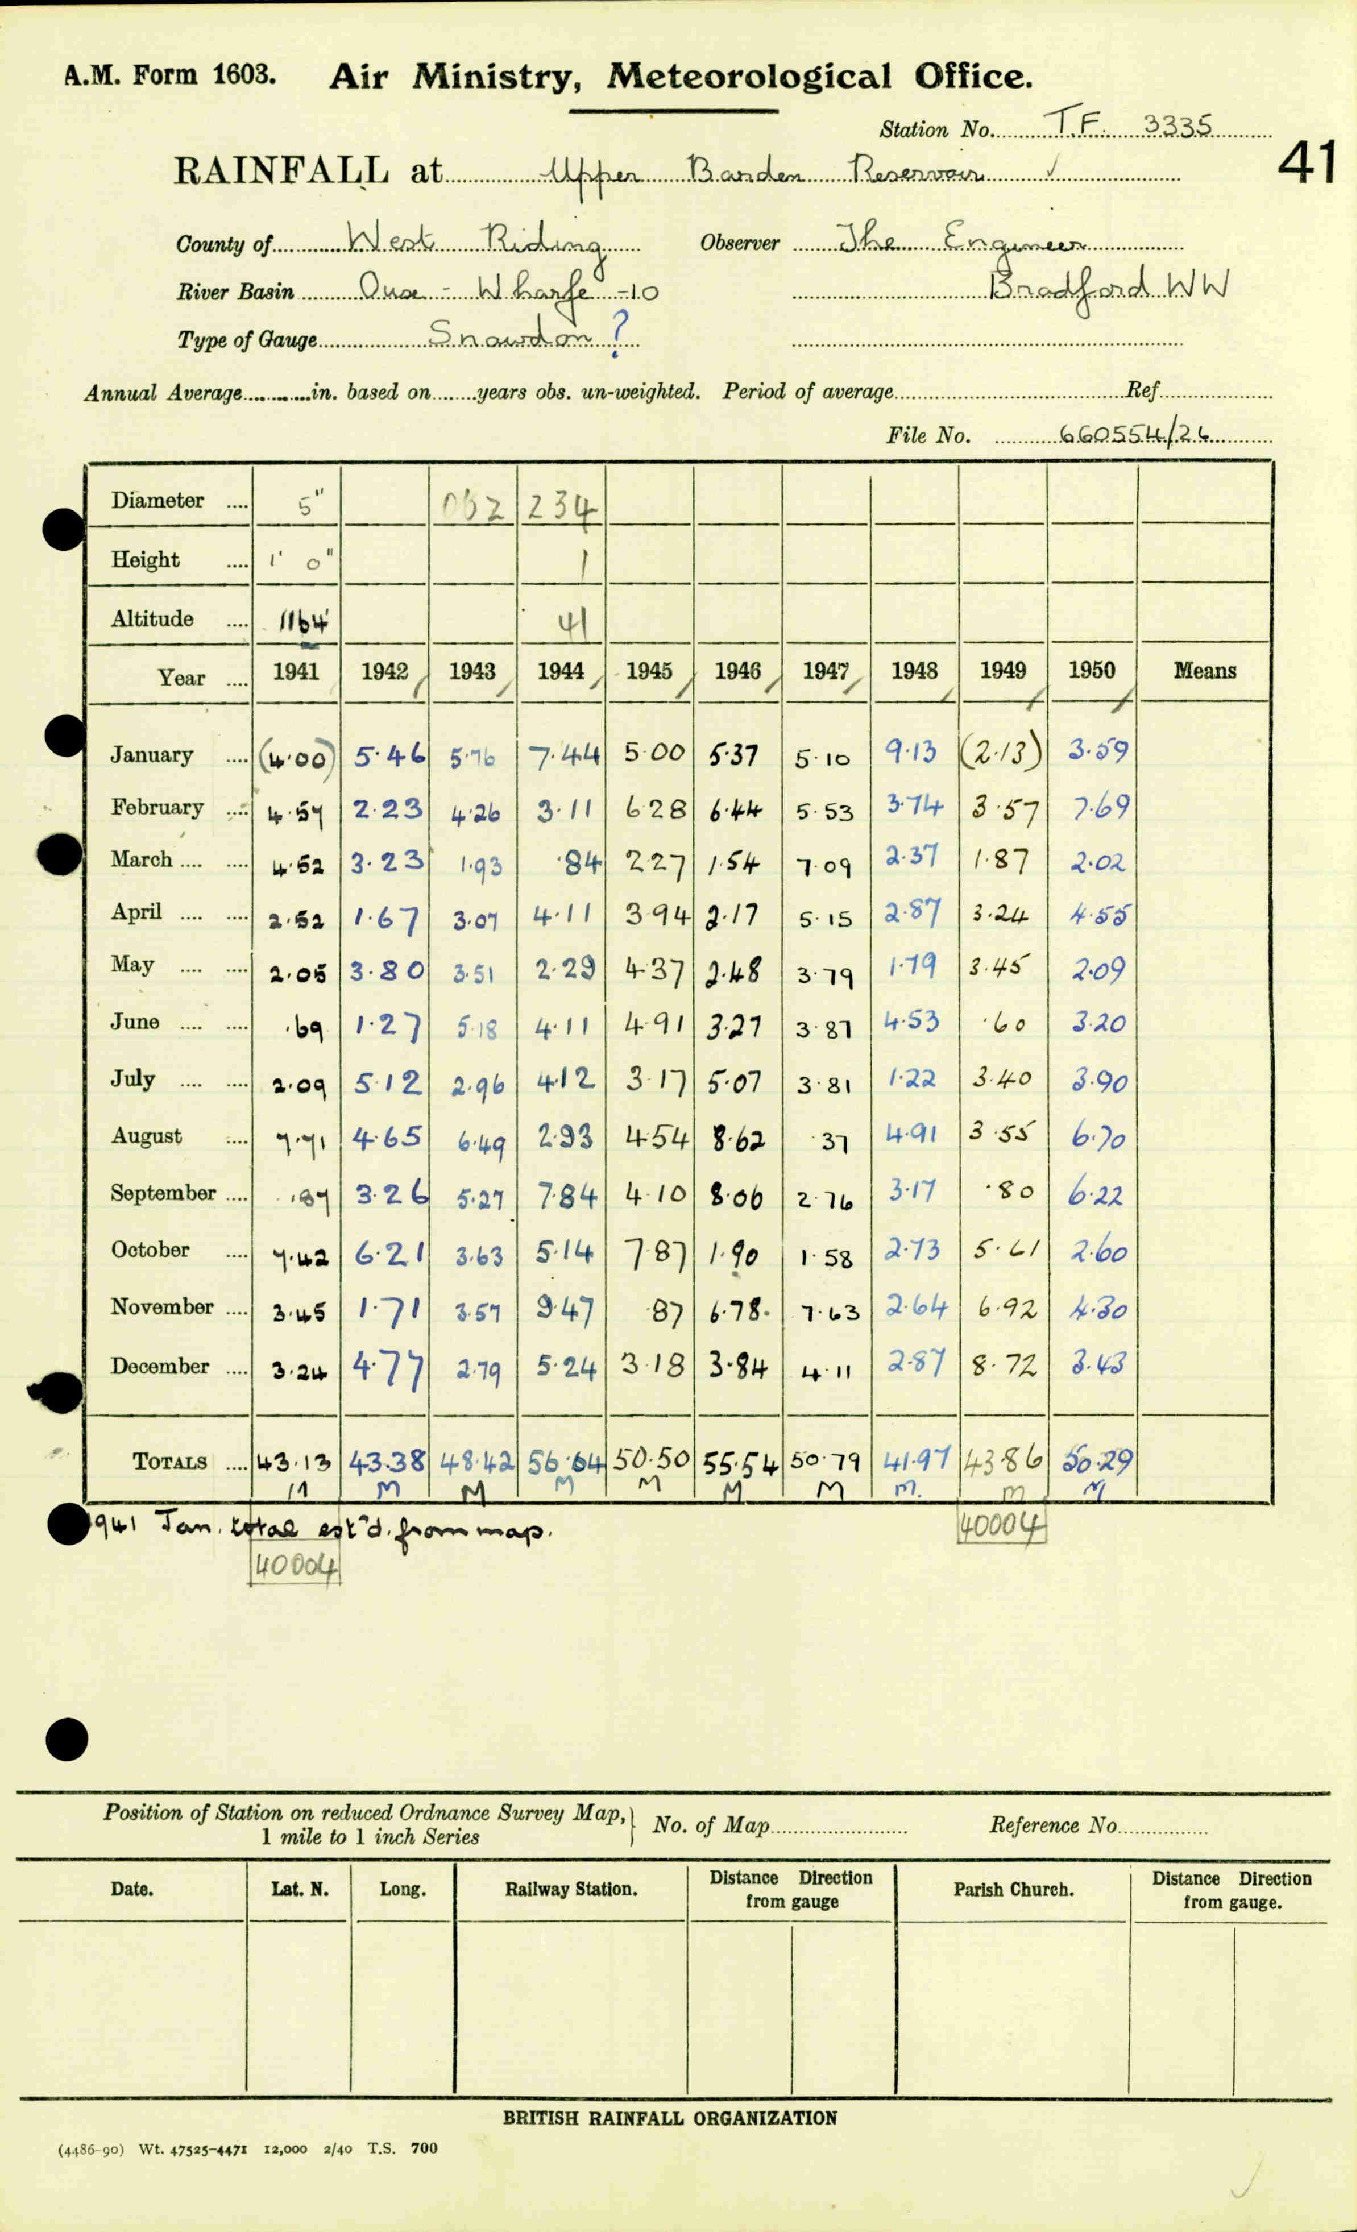 A.M. Form 1603. Air Ministry, Meteorological Office.
Station No. T.F. 3335
41
RAINFALL at Upper Barden Reservoir ✓
County of West Riding Observer The Engineer
River Basin Ouse - Wharfe -10 Bradford WW
Type of Gauge Snowdon ?
Annual Average in. based on years obs. un-weighted. Period of average Ref
File No. 660554/26
Diameter 5" 062 234
Height 1' 0" 1
Altitude 1164' 41
Year 1941 1942 1943 1944 1945 1946 1947 1948 1949 1950 Means
January (4.00) 5.46 5.76 7.44 5.00 5.37 5.10 9.13 (2.13) 3.59
February 4.57 2.23 4.26 3.11 6.28 6.44 5.53 3.74 3.57 7.69
March 4.52 3.23 1.93 .84 2.27 1.54 7.09 2.37 1.87 2.02
April 2.52 1.67 3.07 4.11 3.94 2.17 5.15 2.87 3.24 4.55
May 2.05 3.80 3.51 2.29 4.37 2.48 3.79 1.79 3.45 2.09
June .69 1.27 5.18 4.11 4.91 3.27 3.87 4.53 .60 3.20
July 2.09 5.12 2.96 4.12 3.17 5.07 3.81 1.22 3.40 3.90
August 7.71 4.65 6.49 2.93 4.54 8.62 .37 4.91 3.55 6.70
September .87 3.26 5.27 7.84 4.10 8.06 2.76 3.17 .80 6.22
October 7.42 6.21 3.63 5.14 7.87 1.90 1.58 2.73 5.61 2.60
November 3.45 1.71 3.57 9.47 .87 6.78 7.63 2.64 6.92 4.30
December 3.24 4.77 2.79 5.24 3.18 3.84 4.11 2.87 8.72 3.43
TOTALS 43.13 43.38 48.42 56.64 50.50 55.54 50.79 41.97 43.86 50.29
M M M M M M M M M M
1941 Jan. total est'd. from map. 40004
40004
Position of Station on reduced Ordnance Survey Map, No. of Map Reference No.
1 mile to 1 inch Series
Date. Lat. N. Long. Railway Station. Distance from gauge Direction Parish Church. Distance Direction from gauge.
BRITISH RAINFALL ORGANIZATION
(4486-90) Wt. 47525-4471 12,000 2/40 T.S. 700